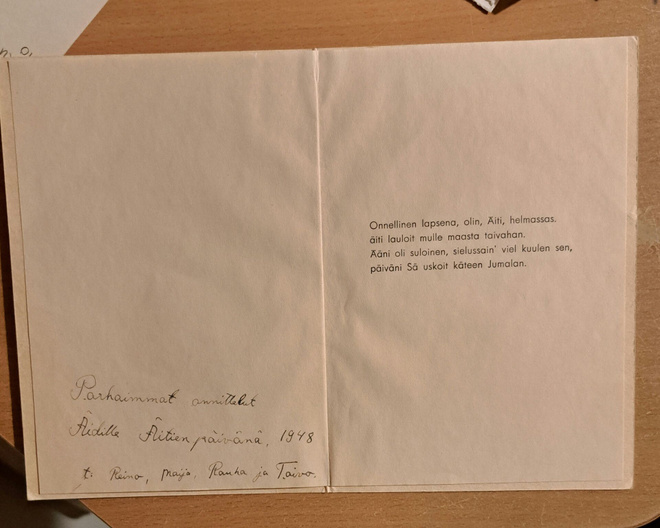 Parhaimmat onnittelut
Äidille Äitien päivänä, 1948
t: Reino, Maija, Rauha ja Taivo.
Onnellinen lapsena, olin, Äiti, helmassas.
äiti lauloit mulle maasta taivahan.
Ääni oli suloinen, sielussain' viel kuulen sen,
päiväni Sä uskoit käteen Jumalan.